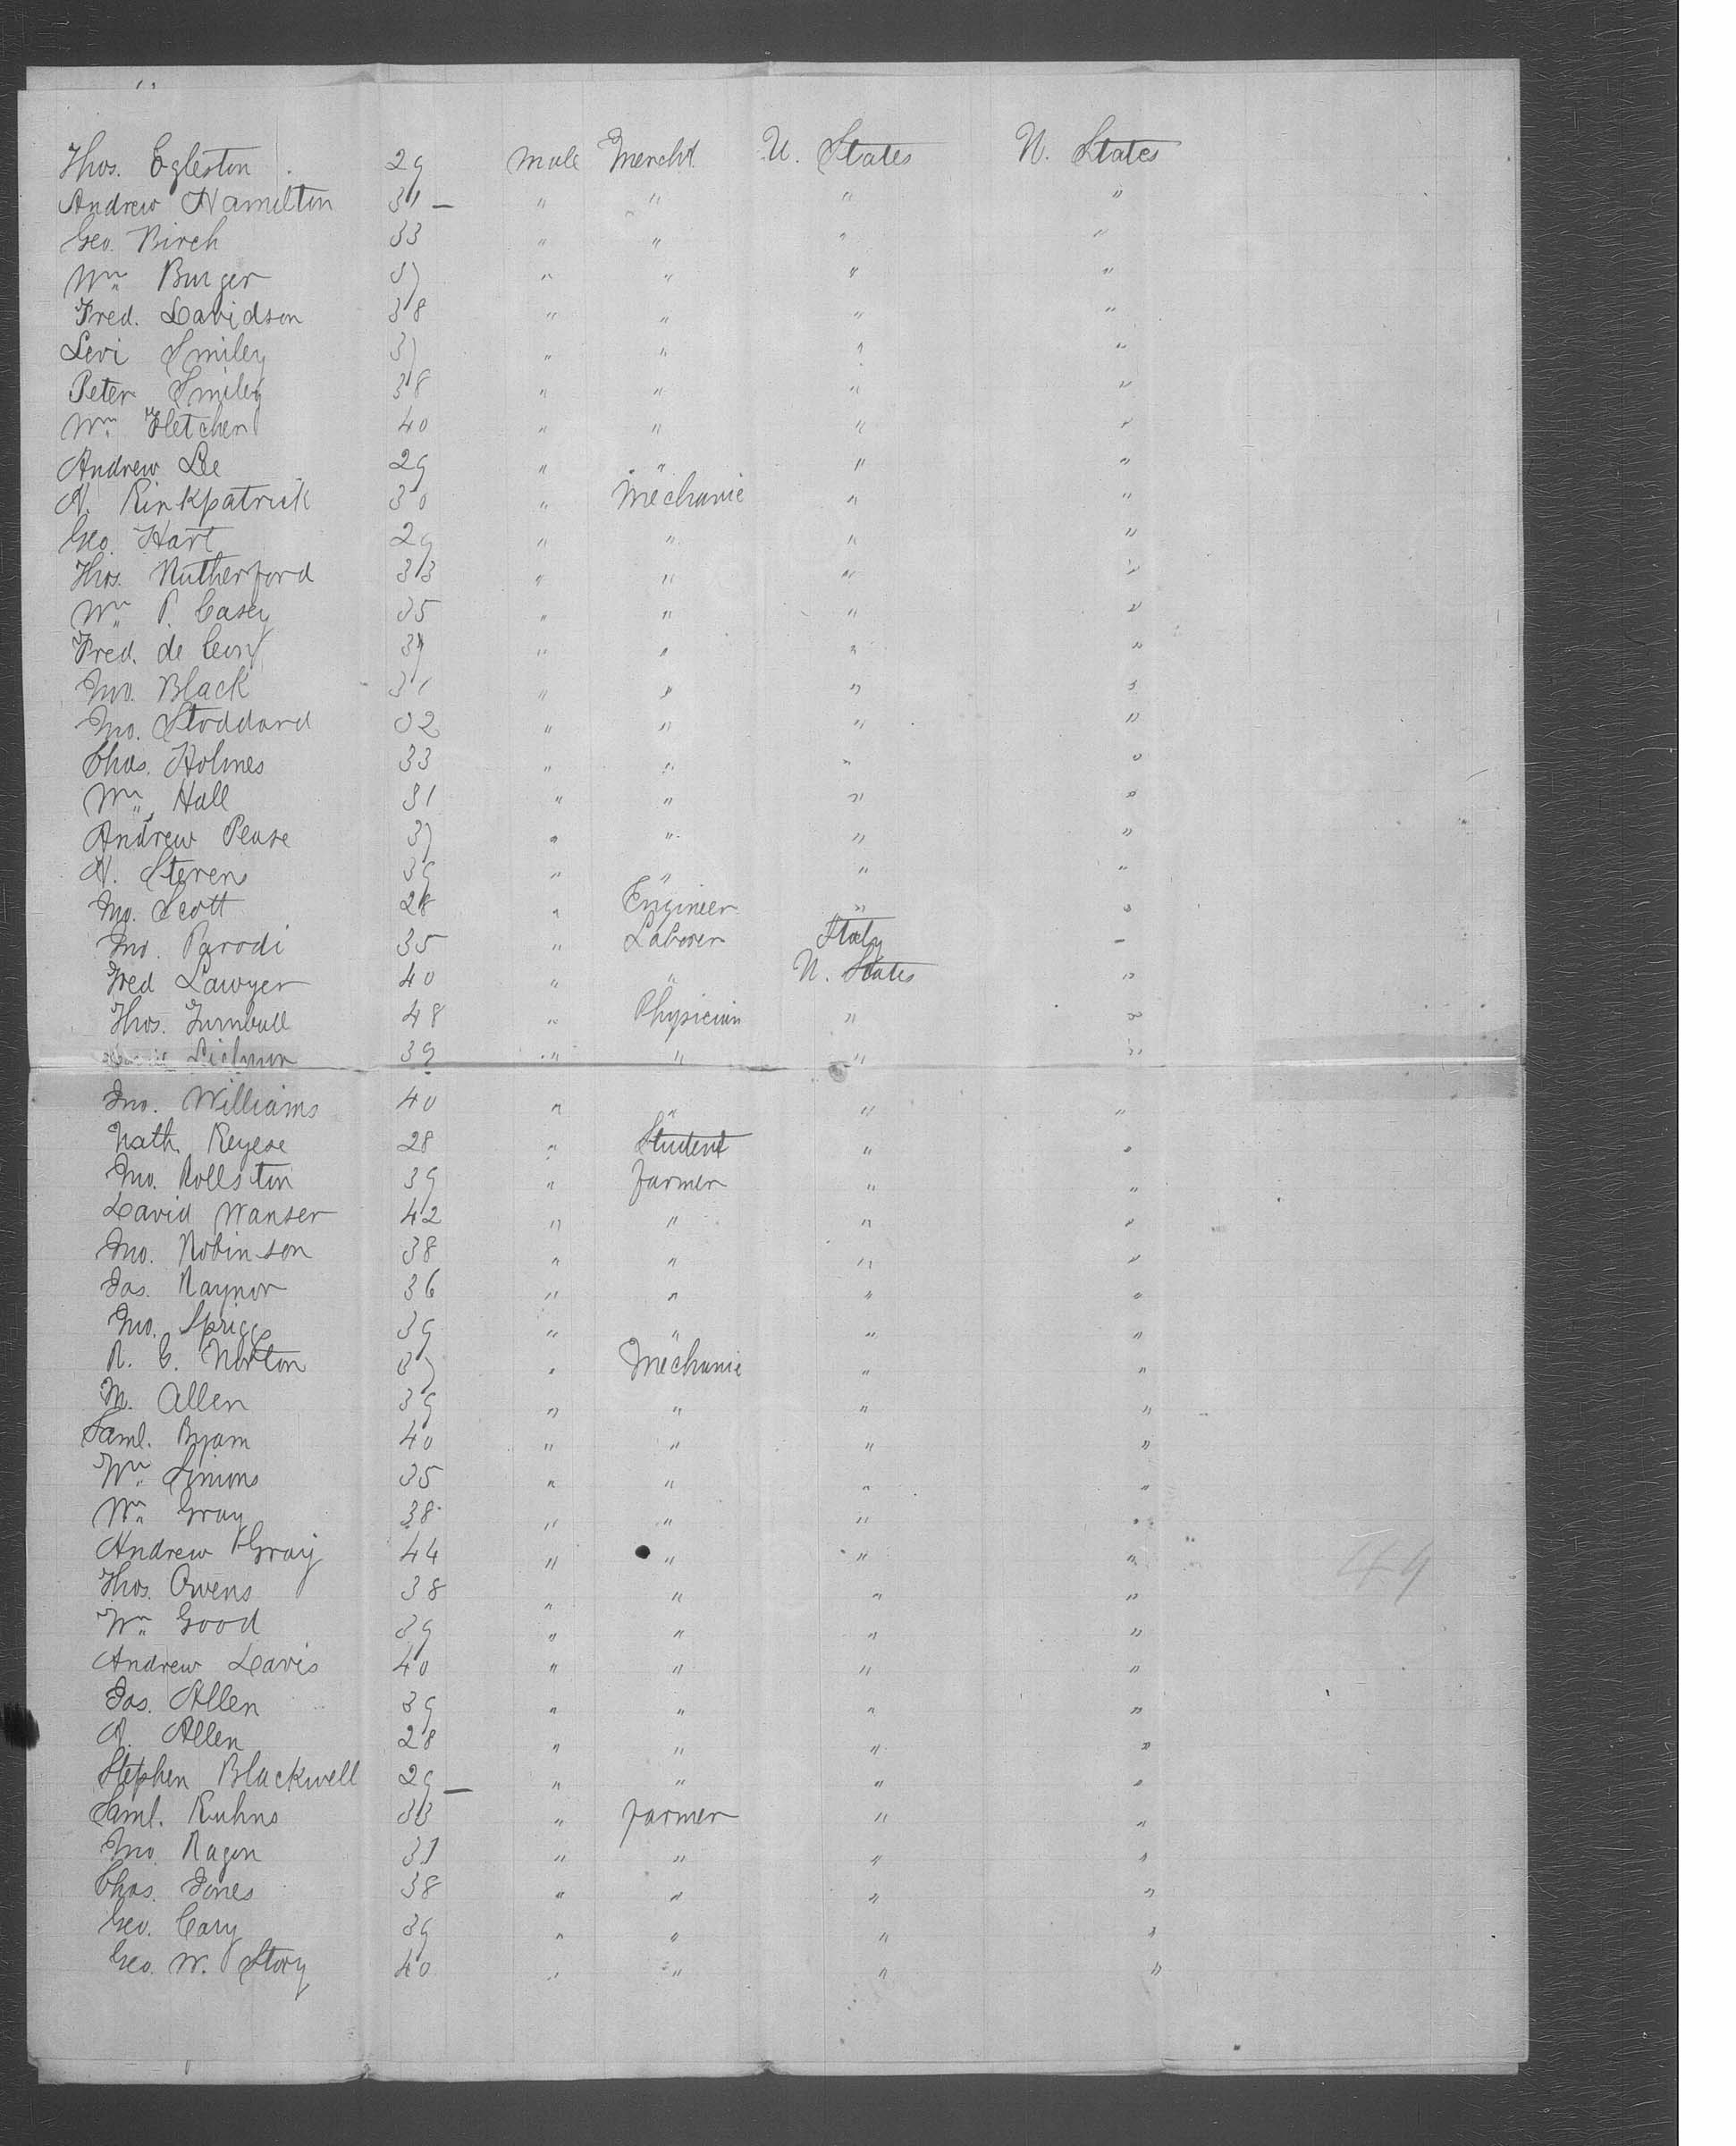 Thos. Egleston 29 male Mercht. U. States U. States
Andrew Hamilton 31 " " " "
Geo. Birch 33 " " " "
Wm. Burger 37 " " " "
Fred. Davidson 38 " " " "
Levi Smiley 37 " " " "
Peter Smiley 38 " " " "
Wm. Fletcher 40 " " " "
Andrew Lee 29 " " " "
A. Kinkpatrick 30 " Mechanic " "
Geo. Hart 29 " " " "
Thos. Rutherford 33 " " " "
Wm. P. Casey 35 " " " "
Fred. de " " " "
Jno. Black 31 " " " "
Jno. Stoddard 32 " " " "
Chas. Holmes 33 " " " "
Wm. Hall 31 " " " "
Andrew Pease 37 " " " "
A. Stevens 39 " " " "
Jno. Scott 28 " Engineer " "
Jno. Parodi 35 " Laborer Italy "
Fred Lawyer 40 " " U. States "
Thos. Turnbull 48 " Physician " "
39 " " " "
Jno. Williams 40 " " " "
Nath. 28 " Student " "
Jno. Rollston 39 " farmer " "
David Wanser 42 " " " "
Jno. Robinson 38 " " " "
Jas. Raynor 36 " " " "
Jno. Sprigg 39 " " " "
R. C. Norton 37 " Mechanic " "
M. Allen 39 " " " "
Saml. Byam 40 " " " "
Wm. Simons 35 " " " "
Wm. Gray 38 " " " "
Andrew Gray 44 " " " "
Thos. Owens 38 " " " "
Wm. Good 39 " " " "
Andrew Davis 40 " " " "
Jas. Allen 39 " " " "
A. Allen 28 " " " "
Stephen Blackwell 29 " " " "
Saml. Kuhns 33 " farmer " "
Jno. Ragon 31 " " " "
Chas. Jones 38 " " " "
Geo. Cary 39 " " " "
Geo. W. Story 40 " " " "